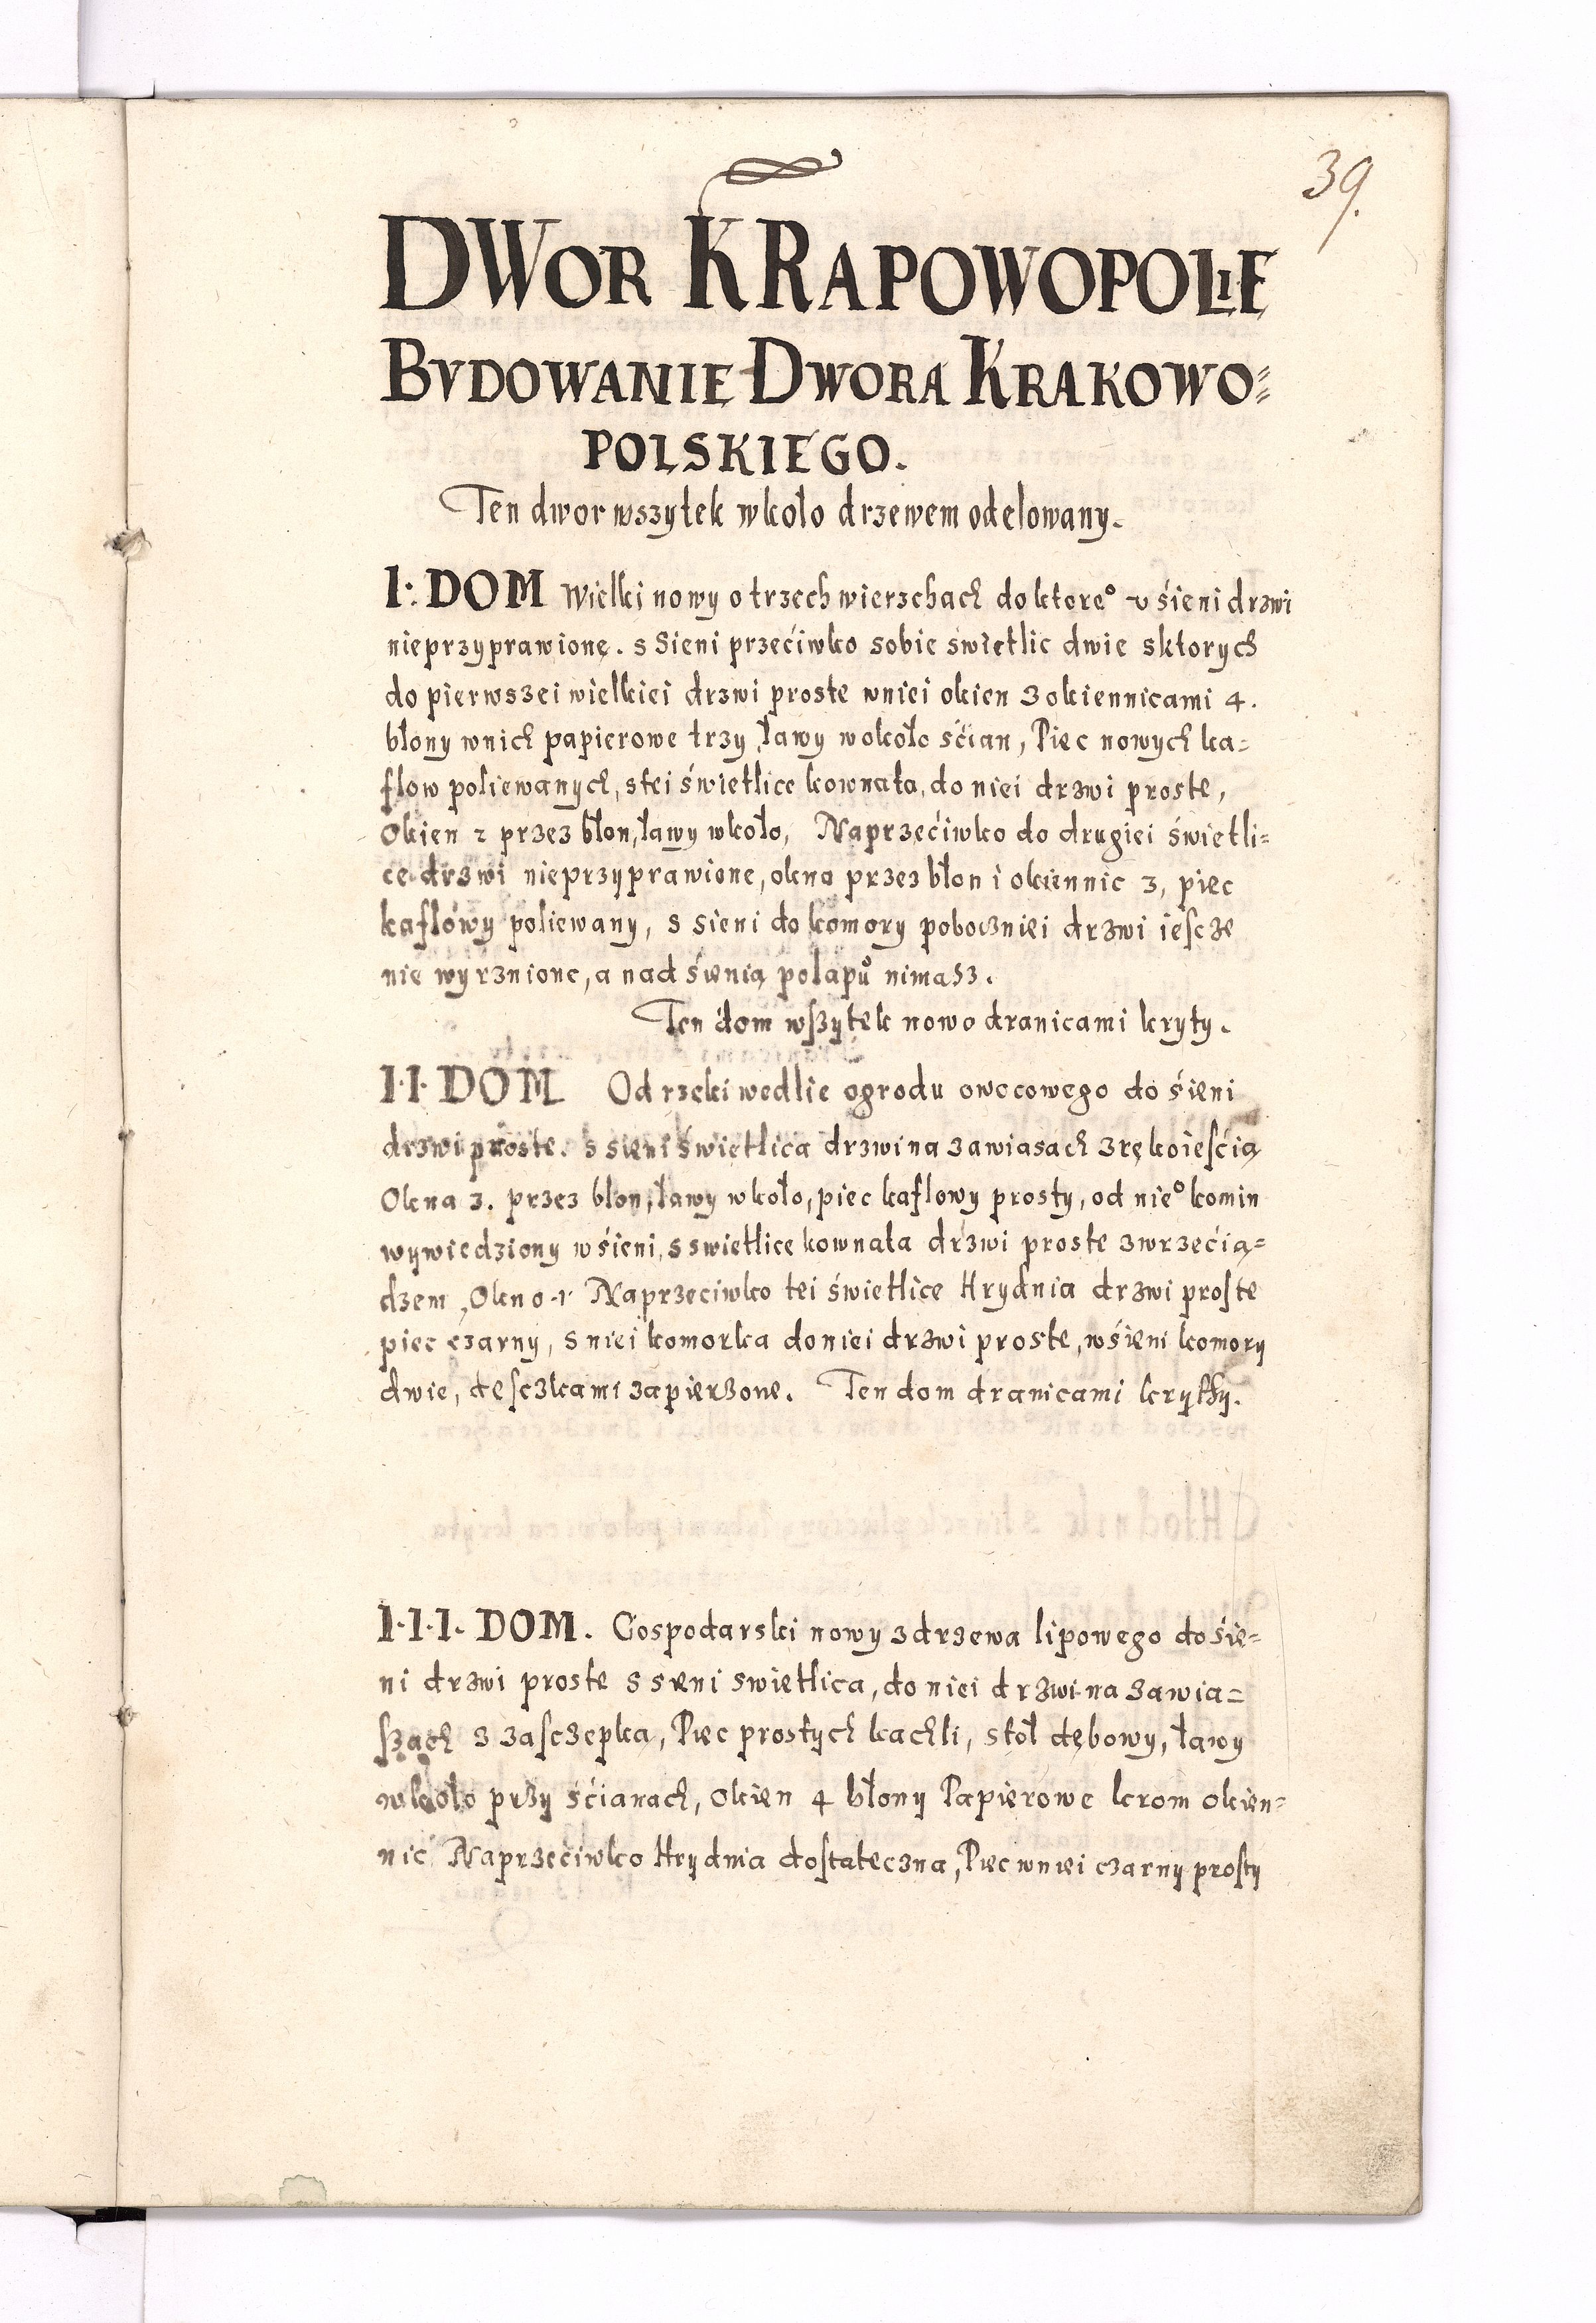 39.
DWOR KRAPOWOPOLIE
BVDOWANIE DWORA KRAKOWO=
POLSKIEGO.
Ten dwor wszytek wkoło drzewem odelowany.
I. DOM Wielki nowy o trzech wierzchach do ktore° v śieni drzwi
nieprzyprawione. s Sieni przećiwko sobie świetlic dwie sktorych
do pierwszei wielkiei drzwi proste wniei okien 3 okiennicami 4.
błony wnich papierowe trzy, ławy wokoło śćian, Piec nowych ka=
flow poliewanych, stei świetlice kownata, do niei drzwi proste,
Okien 2 przez błon, ławy wkoło, Naprzećiwko do drugiei świetli=
ce drzwi nieprzyprawione, okna przez błon i okiennic 3, piec
kaflowy poliewany, s sieni do komory poboczniei drzwi iescze
nie wyrznione, a nad śienią połapů nimasz.
Ten dom wszytek nowo dranicami kryty.
II DOM Od rzeki wedlie ogrodu owocowego do śieni
drzwi proste. s sieni świetlica drzwi na zawiasach z rękoieścią
Okna 3. przez błon, ławy wkoło, piec kaflowy prosty, od nie° komin
wywiedziony w śieni, s swietlice kownata drzwi proste zwrzećią=
dzem, Okno 1 Naprzeciwko tei świetlice Hrydnia drzwi proste
piec czarny, s niei komorka do niei drzwi proste, w śieni komory
dwie, desczkami zapierzone. Ten dom dranicami kryty.
I·I·I· DOM. Gospodarski nowy z drzewa lipowego do śie=
ni drzwi proste s sieni swietlica, do niei drzwi na zawia=
szach z zasczepką, Piec prostych kachli, stoł dębowy, ławy
wkoło przy śćianach, okien 4 błony Papierowe krom okien=
nic Naprzećiwko Hrydnia dostateczna, Piec wniei czarny prosty